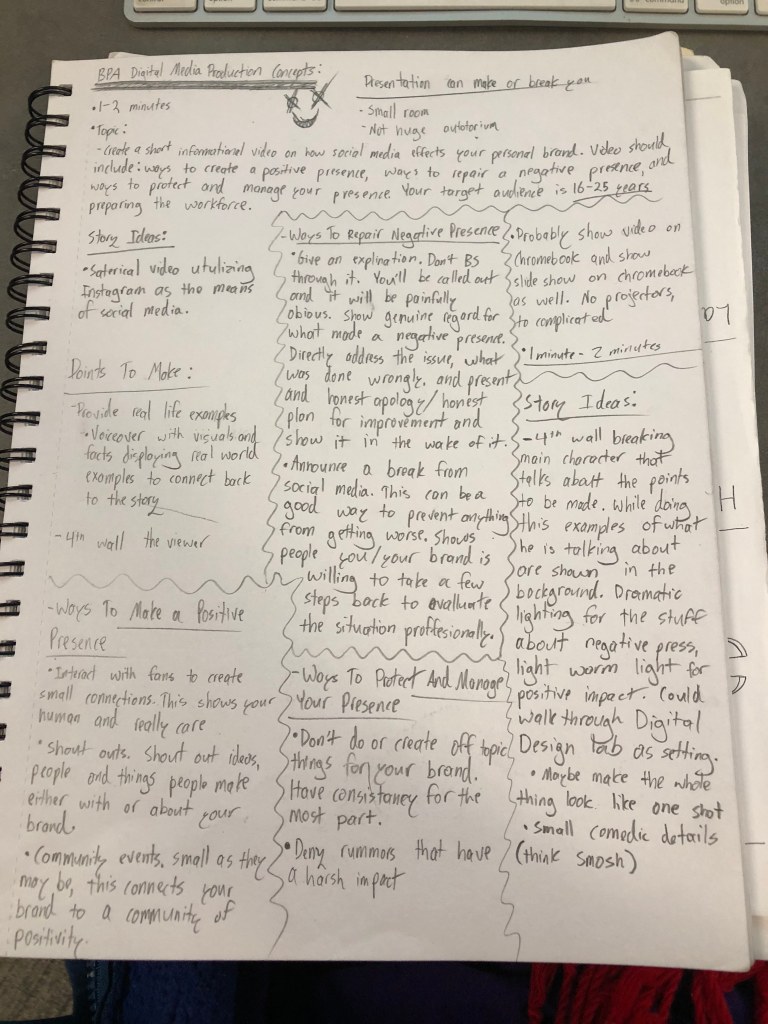 BPA Digital Media Production Concepts:
•1-2 minutes
•Topic:
-Create a short informational video on how social media effects your personal brand. Video should
include: ways to create a positive presence, ways to repair a negative presence, and
ways to protect and manage your presence. Your target audience is 16-25 years
preparing the workforce.
Presentation can make or break you
-Small room
-Not huge autotorium
Story Ideas:
•Saterical video utulizing
Instagram as the means
of social media.
Points To Make:
-Provide real life examples
•Voiceover with visuals and
facts displaying real world
examples to connect back
to the story
-4th wall the viewer
-Ways To Make a Positive
Presence
•Interact with fans to create
small connections. This shows your
human and really care
•Shout outs. Shout out ideas,
people and things people make
either with or about your
brand.
•Community events. small as they
may be, this connects your
brand to a community of
positivity.
-Ways To Repair Negative Presence
•Give an explination. Don't BS
through it. You'll be called out
and it will be painfully
obious. Show genuine regard for
what made a negative presence.
Directly address the issue, what
was done wrongly. and present
and honest apology/honest
plan for improvement and
show it in the wake of it.
•Announce a break from
social media. This can be a
good way to prevent anything
from getting worse. Shows
people you/your brand is
willing to take a few
steps back to evaluate
the situation proffesionally.
-Ways To Protect And Manage
Your Presence
•Don't do or create off topic
things for your brand.
Have consistancy for the
most part.
•Deny rummors that have
a harsh impact
•Probably show video on
chromebook and show
slide show on chromebook
as well. No projectors,
to complicated
•1 minute - 2 minutes
Story Ideas:
-4th wall breaking
main character that
talks about the points
to be made. While doing
this examples of what
he is talking about
are shown in the
background. Dramatic
lighting for the stuff
about negative press,
light worm light for
positive impact. Could
walk through Digital
Design lab as setting.
•Maybe make the whole
thing look like one shot
•small comedic details
(think Smosh)
H
command
option